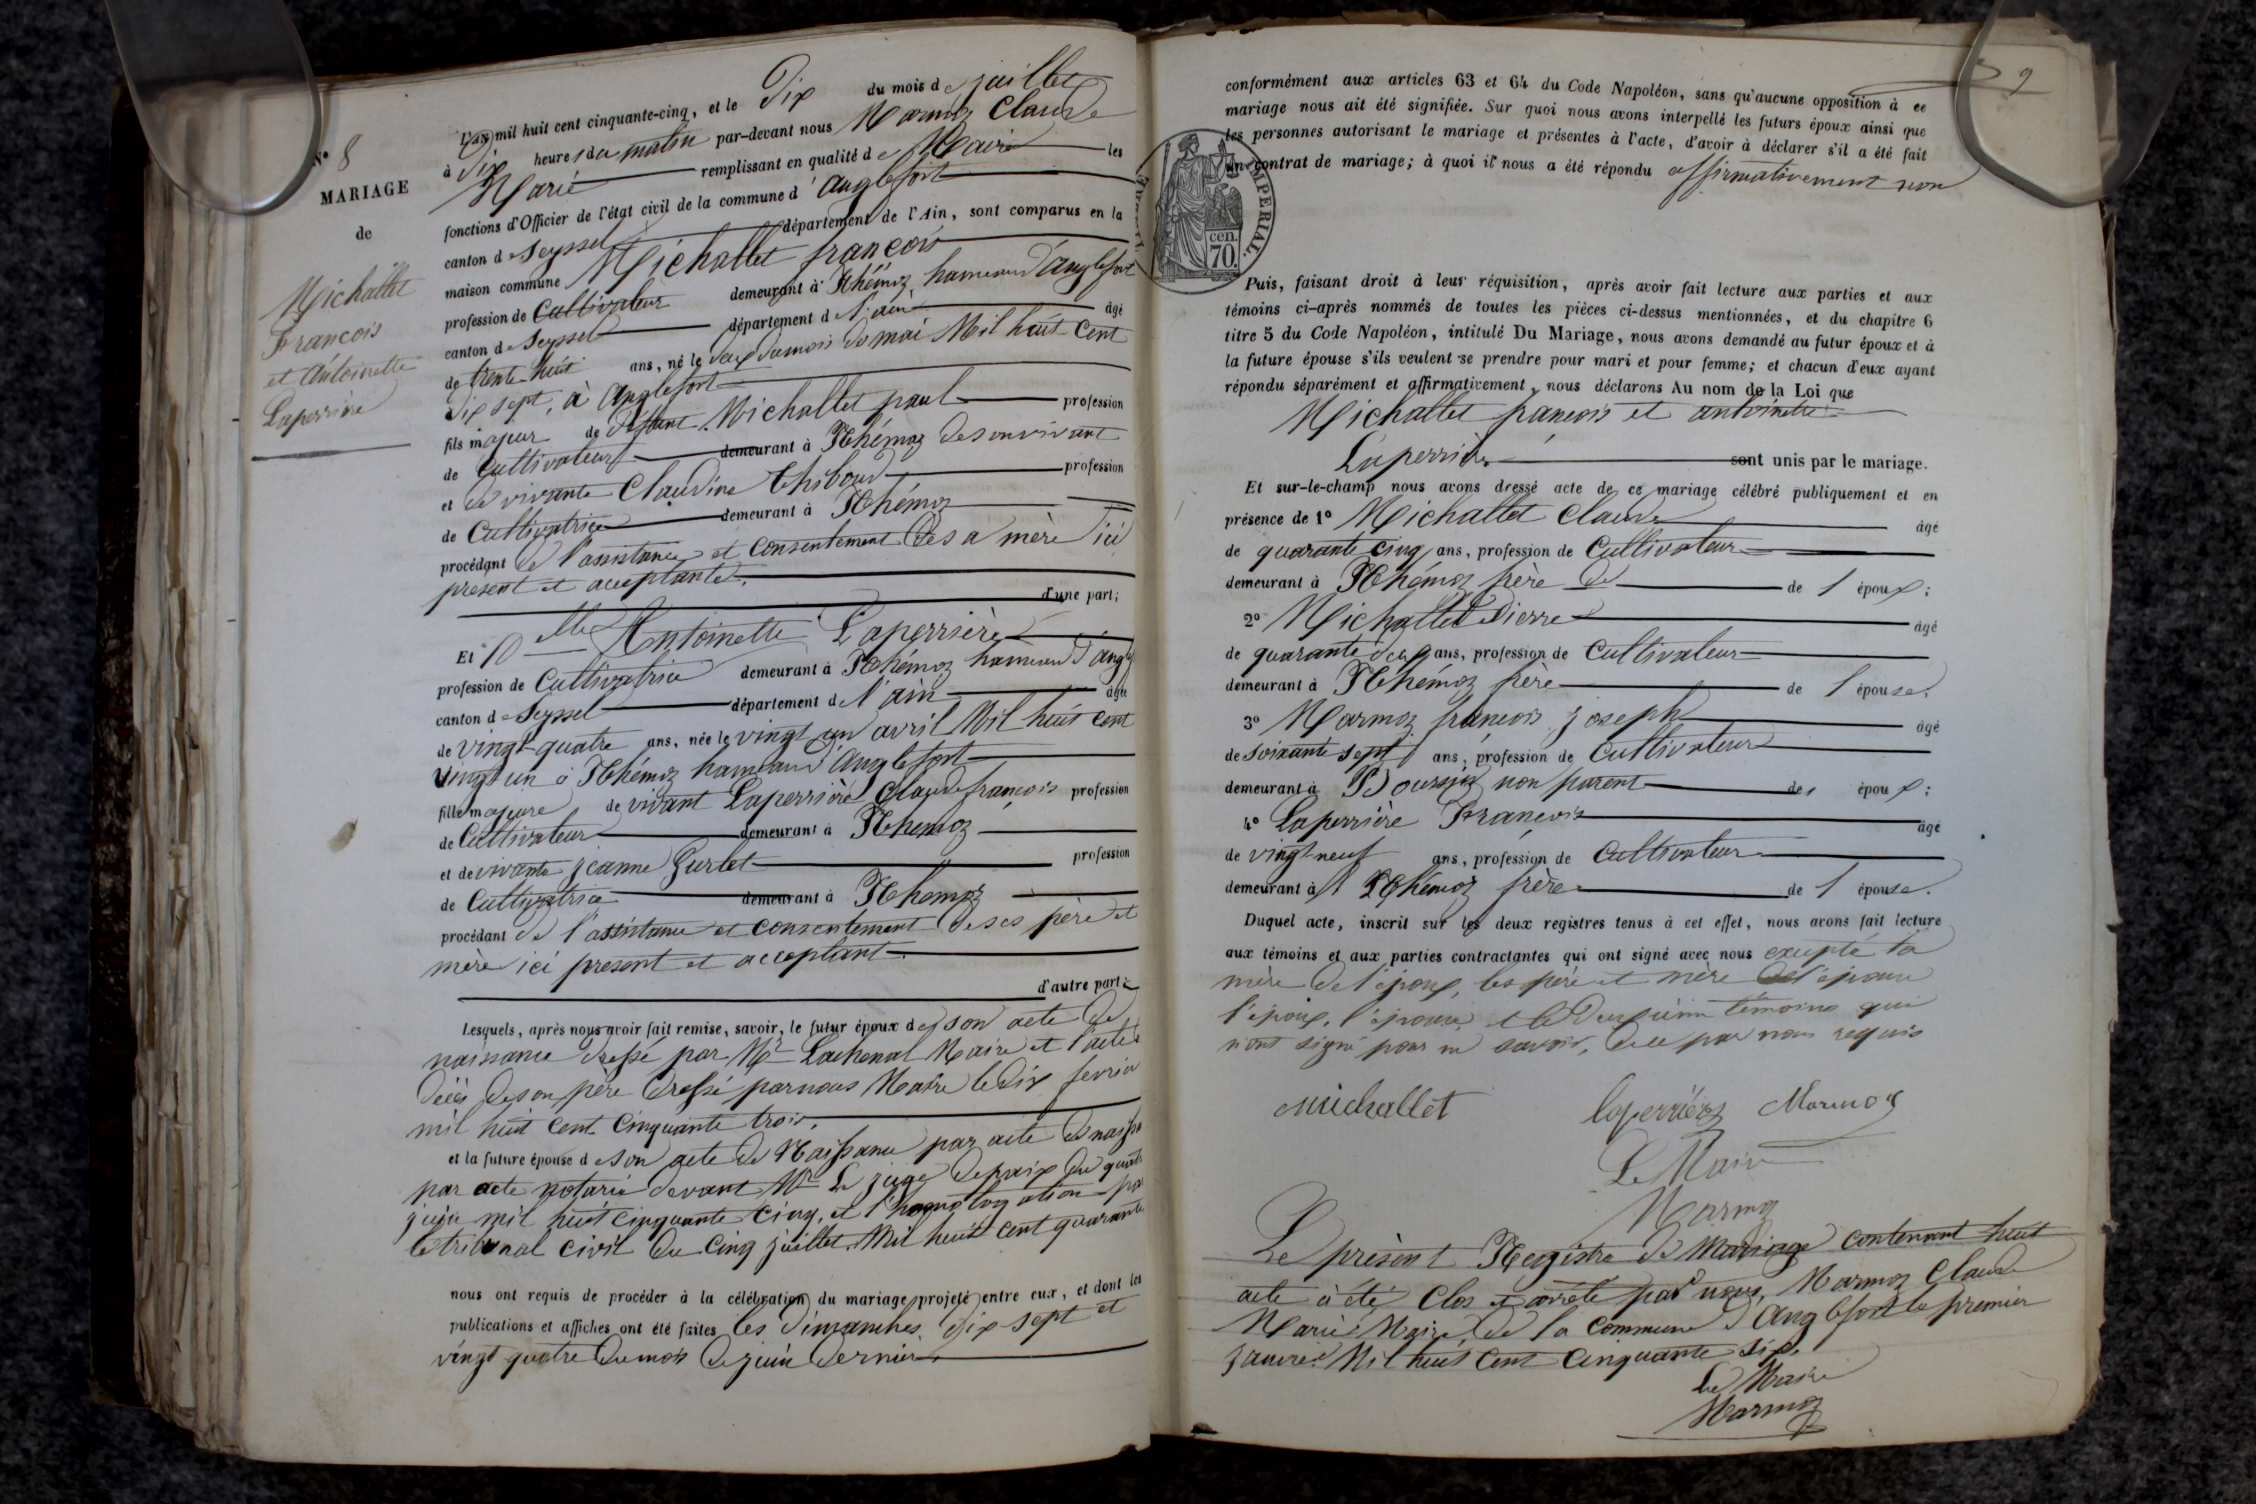 N° 8
MARIAGE
de
Michallet
François
et Antoinette
Laperrière
L'an mil huit cent cinquante-cinq, et le Dix du mois de juillet
à Dix heures du matin par-devant nous Marmoz Claude
Marie remplissant en qualité de Maire les
fonctions d'Officier de l'état civil de la commune d'Anglefort
canton de Seyssel département de l'Ain, sont comparus en la
maison commune Michallet françois
profession de Cultivateur demeurant à Rhémoz hameau d'anglefort
canton de Seyssel département de l'ain âgé
de trente huit ans, né le deux du mois de mai Mil huit Cent
Dix sept, à Anglefort
fils majeur de défunt Michallet paul profession
de Cultivateur demeurant à Rhémoz de son vivant
et de vivante Claudine Thiboud profession
de Cultivatrice demeurant à Rhémoz
procédant de l'assistance et consentement de sa mère ici
présent et acceptante.
d'une part;
Et Dlle Antoinette Laperrière
profession de Cultivatrice demeurant à Rhémoz hameau d'angl
canton de Seyssel département de l'ain âgée
de vingt-quatre ans, née le vingt un avril Mil huit cent
vingt un à Rhémoz hameau d'Anglefort
fille majeure de vivant Laperrière Claude françois profession
de Cultivateur demeurant à Rhemoz
et de vivante jeanne Gurlet profession
de Cultivatrice demeurant à Rhemoz
procédant de l'assistance et consentement de ses père et
mère ici present et acceptant.
d'autre part;
Lesquels, après nous avoir fait remise, savoir, le futur époux de son acte de
naissance dressé par Mr Lachenal Maire et l'acte de
décès de son père dressé par nous Maire le Dix fevrier
mil huit cent Cinquante trois,
et la future épouse de son acte de Naissance par acte de naiss
par acte notarié devant Mr Le juge de paix du quatre
juin mil huit cinquante cinq, et l'homologation par
le tribunal civil du Cinq juillet Mil huit cent quarante
nous ont requis de procéder à la célébration du mariage projeté entre eux, et dont les
publications et affiches ont été faites les Dimanches Dix sept et
vingt quatre du mois de juin dernier
9
conformément aux articles 63 et 64 du Code Napoléon, sans qu'aucune opposition à ce
mariage nous ait été signifiée. Sur quoi nous avons interpellé les futurs époux ainsi que
les personnes autorisant le mariage et présentes à l'acte, d'avoir à déclarer s'il a été fait
un contrat de mariage; à quoi il nous a été répondu affirmativement non
TIMBRE IMPERIAL.
cen.
70.
Puis, faisant droit à leur réquisition, après avoir fait lecture aux parties et aux
témoins ci-après nommés de toutes les pièces ci-dessus mentionnées, et du chapitre 6
titre 5 du Code Napoléon, intitulé Du Mariage, nous avons demandé au futur époux et à
la future épouse s'ils veulent se prendre pour mari et pour femme; et chacun d'eux ayant
répondu séparément et affirmativement, nous déclarons Au nom de la Loi que
Michallet françois et antoinette
Laperrière sont unis par le mariage.
Et sur-le-champ nous avons dressé acte de ce mariage célébré publiquement et en
présence de 1° Michallet Claude âgé
de quarante cinq ans, profession de Cultivateur
demeurant à Rhémoz frère de de l'époux;
2° Michallet Pierre âgé
de quarante deux ans, profession de Cultivateur
demeurant à Rhémoz frère de l'épouse.
3° Marmoz françois joseph âgé
de soixante sept ans, profession de Cultivateur
demeurant à Boursin non parent de époux;
4° Laperrière François âgé
de vingt-neuf ans, profession de Cultivateur
demeurant à Rhémoz frère de l'épouse.
Duquel acte, inscrit sur les deux registres tenus à cet effet, nous avons fait lecture
aux témoins et aux parties contractantes qui ont signé avec nous excepté la
mère de l'époux, les père et mère de l'épouse
l'époux, l'épouse, et le deuxième témoins qui
n'ont signé pour ne savoir, de ce par nous requis
Michallet laperrière Marmoz
Le Maire
Marmoz
Le présent Registre de Mariage contenant huit
acte à été Clos et arrêté par nous, Marmoz Claude
Marie Maire de la commune d'Anglefort le premier
janvier Mil huit Cent Cinquante six.
Le Maire
Marmoz